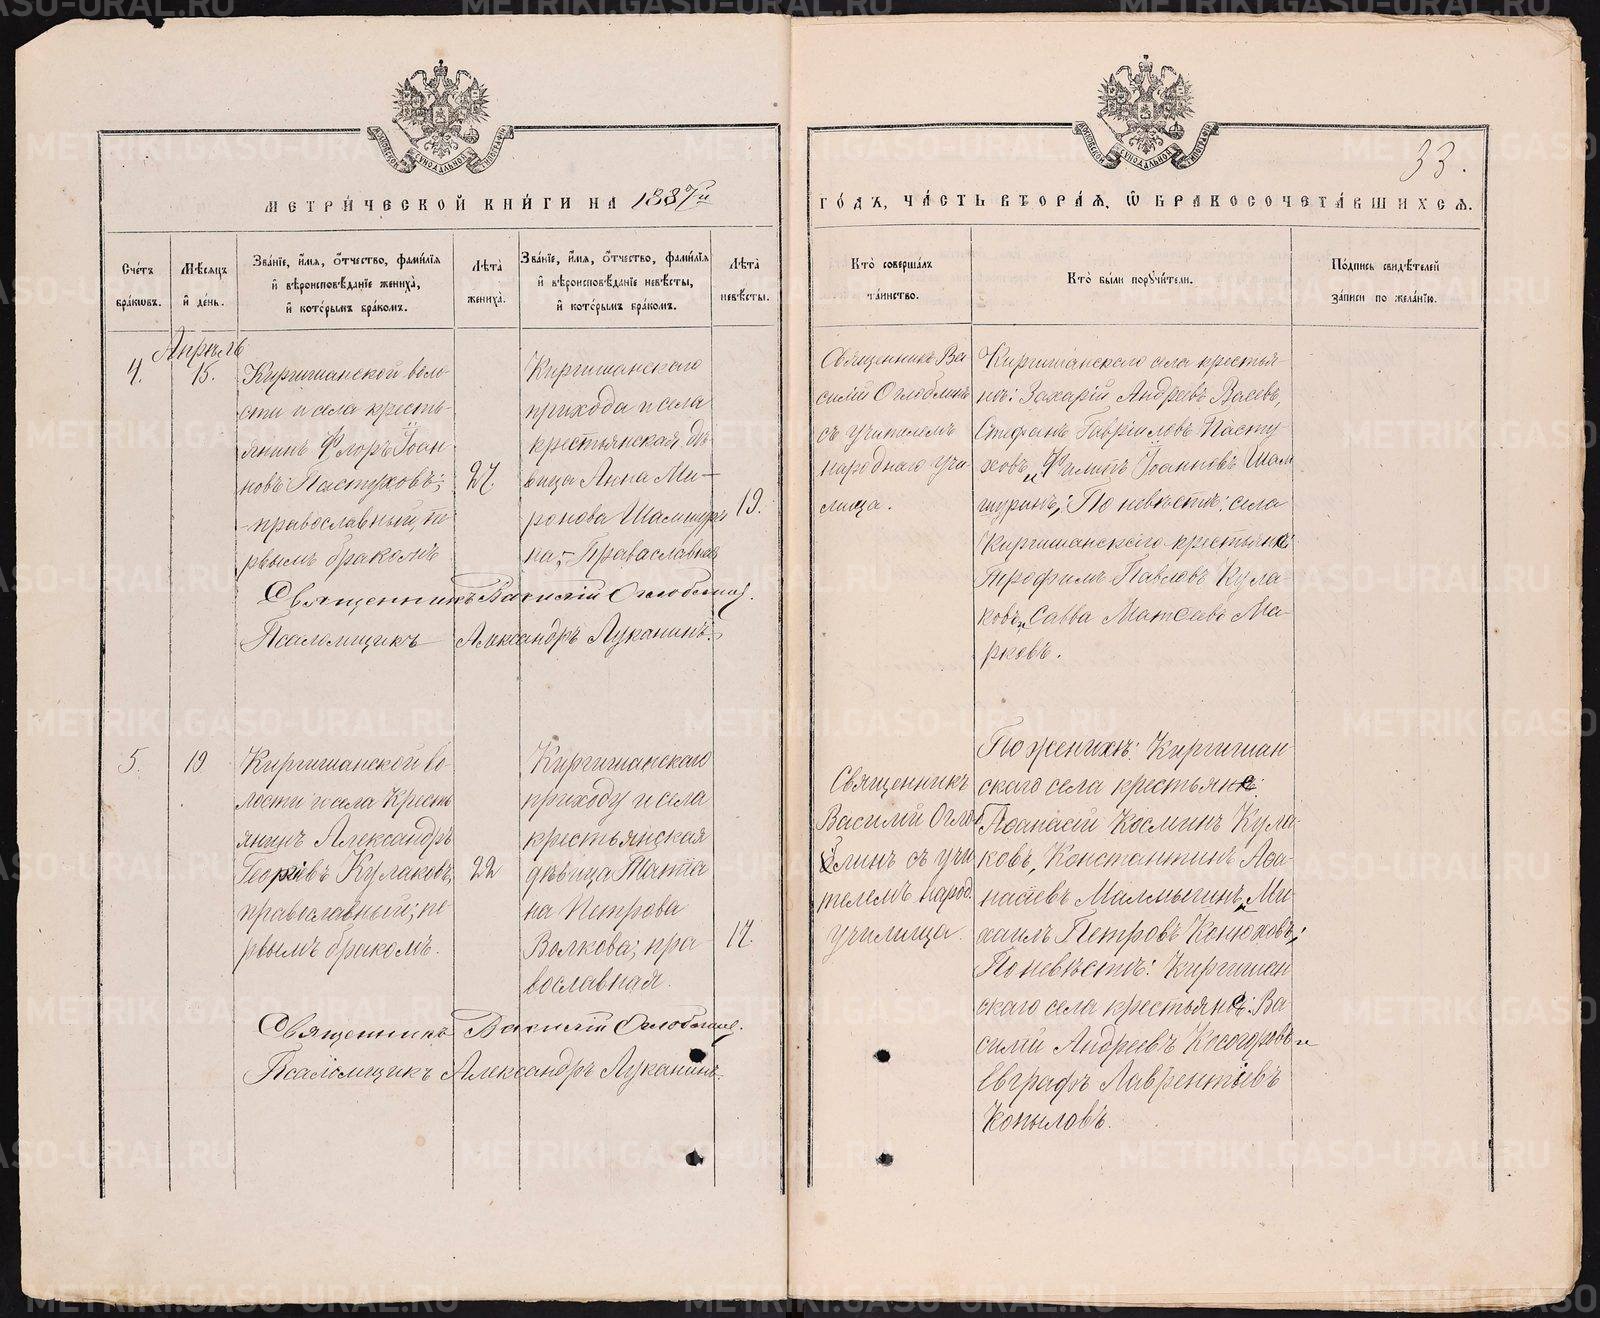 МЕТРИ́ЧЕСКОЙ КНИ́ГИ НА 1887й
Счéтъ бра́ковъ.
Мѣ́сяцъ и҆ де́нь.
Зва́нїе, и҆́мя, ѻ҆́тчество, фами́лїя и҆ вѣроисповѣ́данїе жениха̀, и҆ кото́рымъ бра́комъ.
Лѣ́та жениха̀.
Зва́нїе, и҆́мя, ѻ҆́тчество, фами́лїя и҆ вѣроисповѣ́данїе невѣ́сты, и҆ кото́рымъ бра́комъ.
Лѣ́та невѣ́сты.
Апрѣль
4.
15.
Киргишанской воло-
сти и села кресть-
янинъ Флоръ Іоан-
новъ Пастуховъ;
православный, пе-
рвымъ бракомъ
27.
Киргишанскаго
прихода и села
крестьянская дѣ-
вица Анна Ми-
ронова Шампури-
на, Православная
19.
Священникъ Василій Оглоблинъ.
Псаломщикъ Александръ Луканинъ.
5.
19
Киргишанской во-
лости и села Кресть
янинъ Александръ
Георгіевъ Кулаковъ,
православный; пе-
рвымъ бракомъ.
22
Киргишанскаго
приходу и села
крестьянская
дѣвица Татія
на Петрова
Волкова; пра-
вославная.
17.
Священникъ Василій Оглоблинъ.
Псаломщикъ Александръ Луканинъ.
33.
ГО́ДЪ, ЧА́СТЬ ВТОРА́Я, Ѡ҆ БРАКОСОЧЕТА́ВШИХСЯ.
Кто̀ соверша́лъ та́инство.
Кто̀ бы́ли поручи́тели.
По́дпись свидѣ́телей за́писи по жела́нїю.
Священникъ Ва
силій Оглоблинъ
съ учителемъ
народнаго учи-
лища.
Киргишанскаго села крестья-
не: Захарій Андреевъ Васевъ,
Стефанъ Гавріиловъ Пасту
ховъ и Филиппъ Іоанновъ Шам
пуринъ; По невѣстѣ: села
Киргишанскаго крестьяне:
Трофимъ Павловъ Кула-
ковъ и Савва Матѳеевъ Ма-
рковъ.
Священникъ
Василій Огло
блинъ съ учи
телемъ народ.
училища.
По женихѣ: Киргишан-
скаго села крестьяне:
Аѳанасій Косминъ Кула-
ковъ, Константинъ Аѳа-
насіевъ Малмыгинъ и Ми-
хаилъ Петровъ Конюховъ;
По невѣстѣ: Киргишан
скаго села крестьяне: Ва
силій Андреевъ Косогоровъ и
Евграфъ Лаврентіевъ
Копыловъ.
METRIKI.GASO-URAL.RU